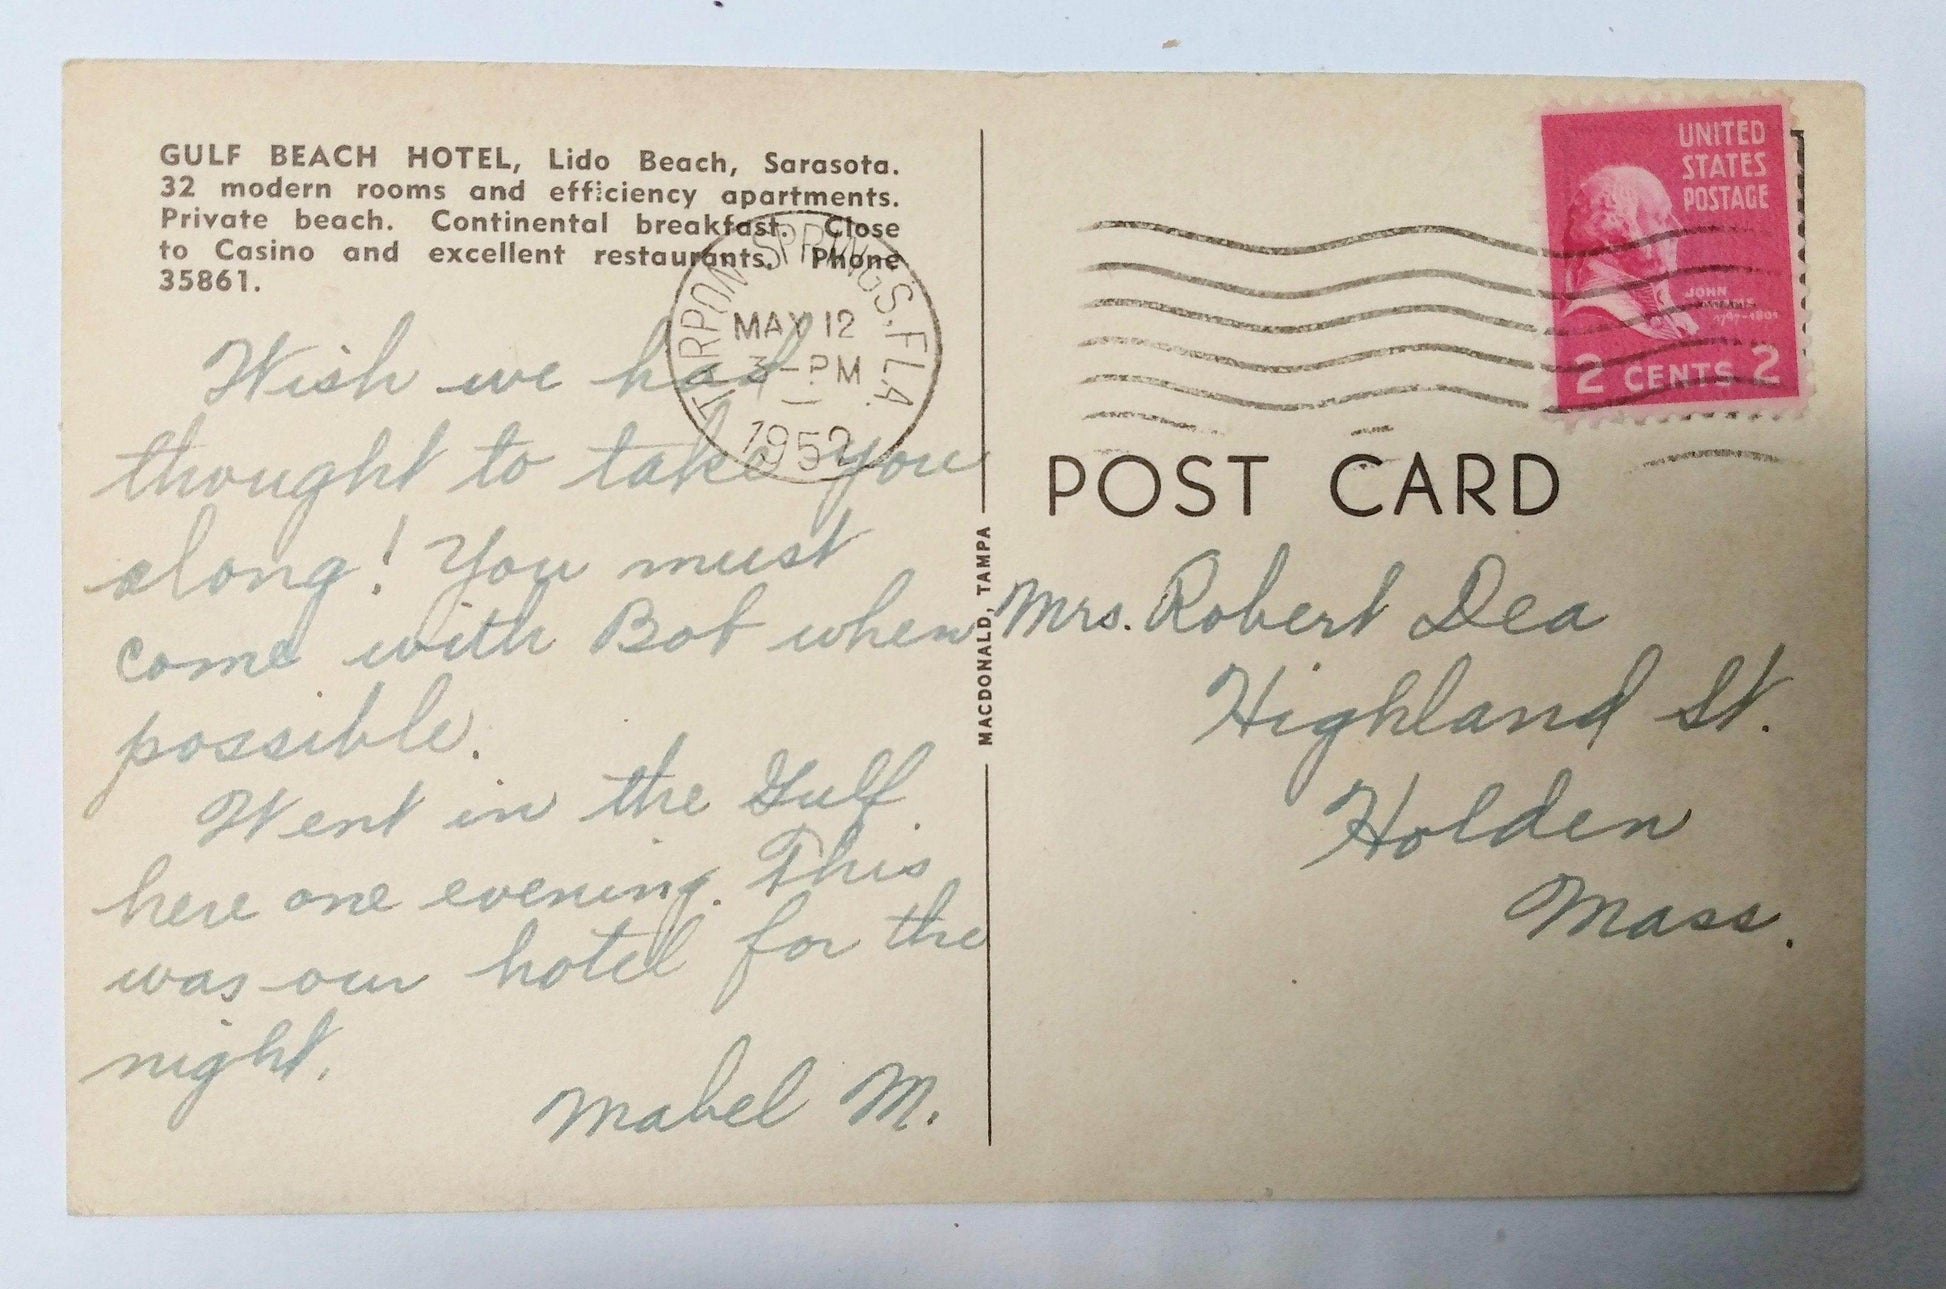 GULF BEACH HOTEL, Lido Beach, Sarasota.
32 modern rooms and efficiency apartments.
Private beach. Continental breakfast. Close
to Casino and excellent restaurants. Phone
35861.
TARPON SPRINGS, FLA.
MAY 12
3-PM
1952
Wish we had
thought to take you
along! You must
come with Bob when
possible.
Went in the Gulf
here one evening. This
was our hotel for the
night.
Mabel M.
MACDONALD, TAMPA
UNITED
STATES
POSTAGE
JOHN
ADAMS
1797-1801
2 CENTS 2
POST CARD
Mrs. Robert Dea
Highland St.
Holden
Mass.